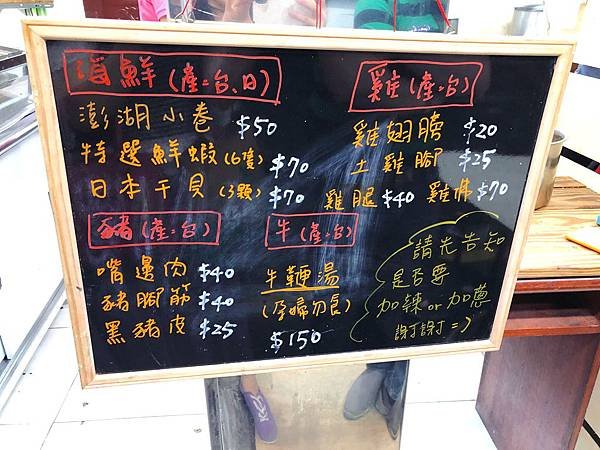 海鮮(產:台、日)
澎湖小卷 $50
特選鮮蝦(6隻) $70
日本干貝(3顆) $70
雞(產:台)
雞翅膀 $20
土雞腳 $25
雞腿 $40 雞佛 $70
豬(產:台)
嘴邊肉 $40
豬腳筋 $40
黑豬皮 $25
牛(產:台)
牛鞭湯
(孕婦勿食)
$150
請先告知
是否要
加辣or加蔥
謝謝=)